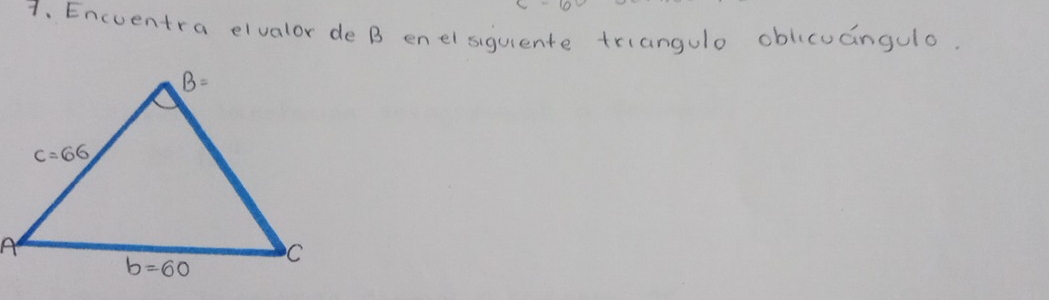 7. Encuentra el valor de B en el siguiente triangulo oblicuángulo.
B=
c=66
A
C
b=60